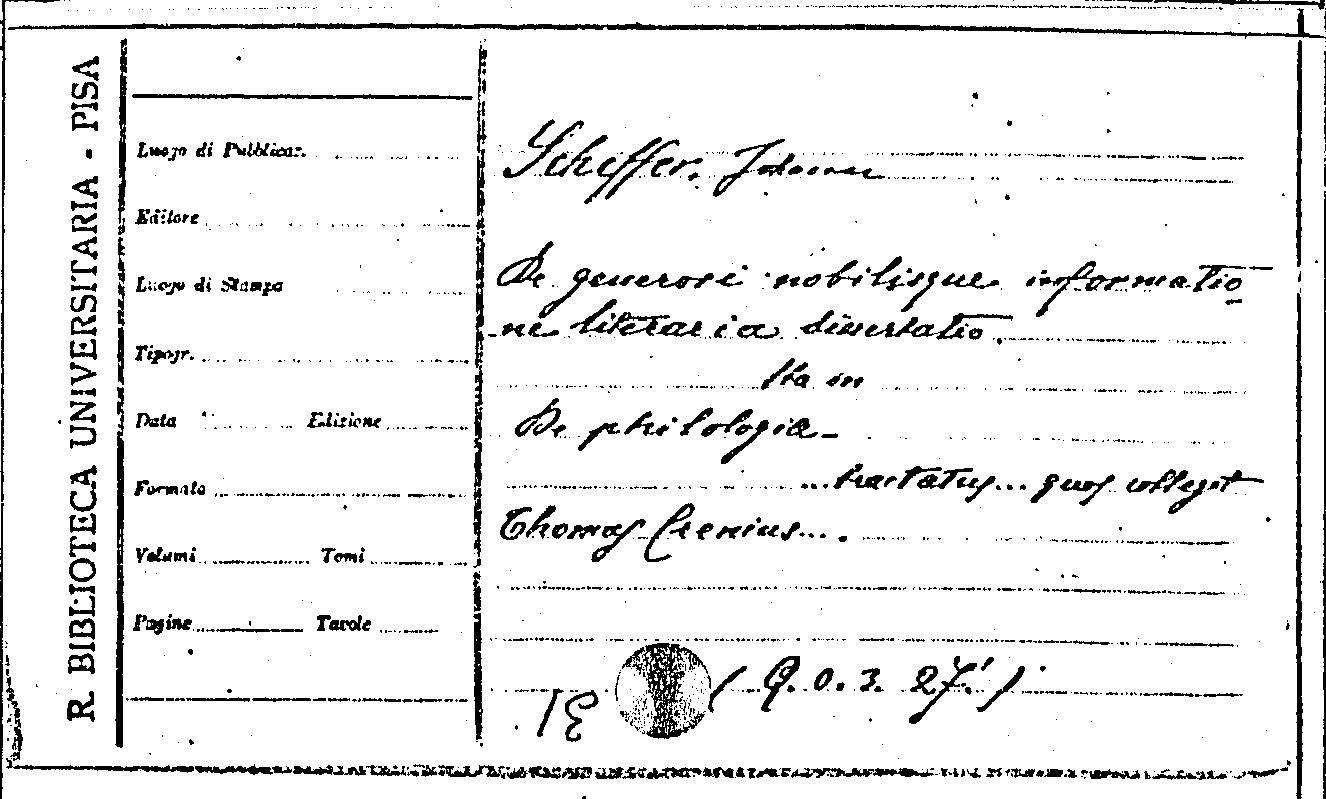 R. BIBLIOTECA UNIVERSITARIA - PISA
Luogo di Pubblicaz.
Editore
Luogo di Stampa
Tipogr.
Data Edizione
Formato
Volumi Tomi
Pagine Tavole
Scheffer, Johannes
De generosi nobilisque informatio-
ne literaria dissertatio.
Sta in
De philologia
...tractatus... quos collegit
Thomas Crenius...
(Q. 0. 3. 27.)